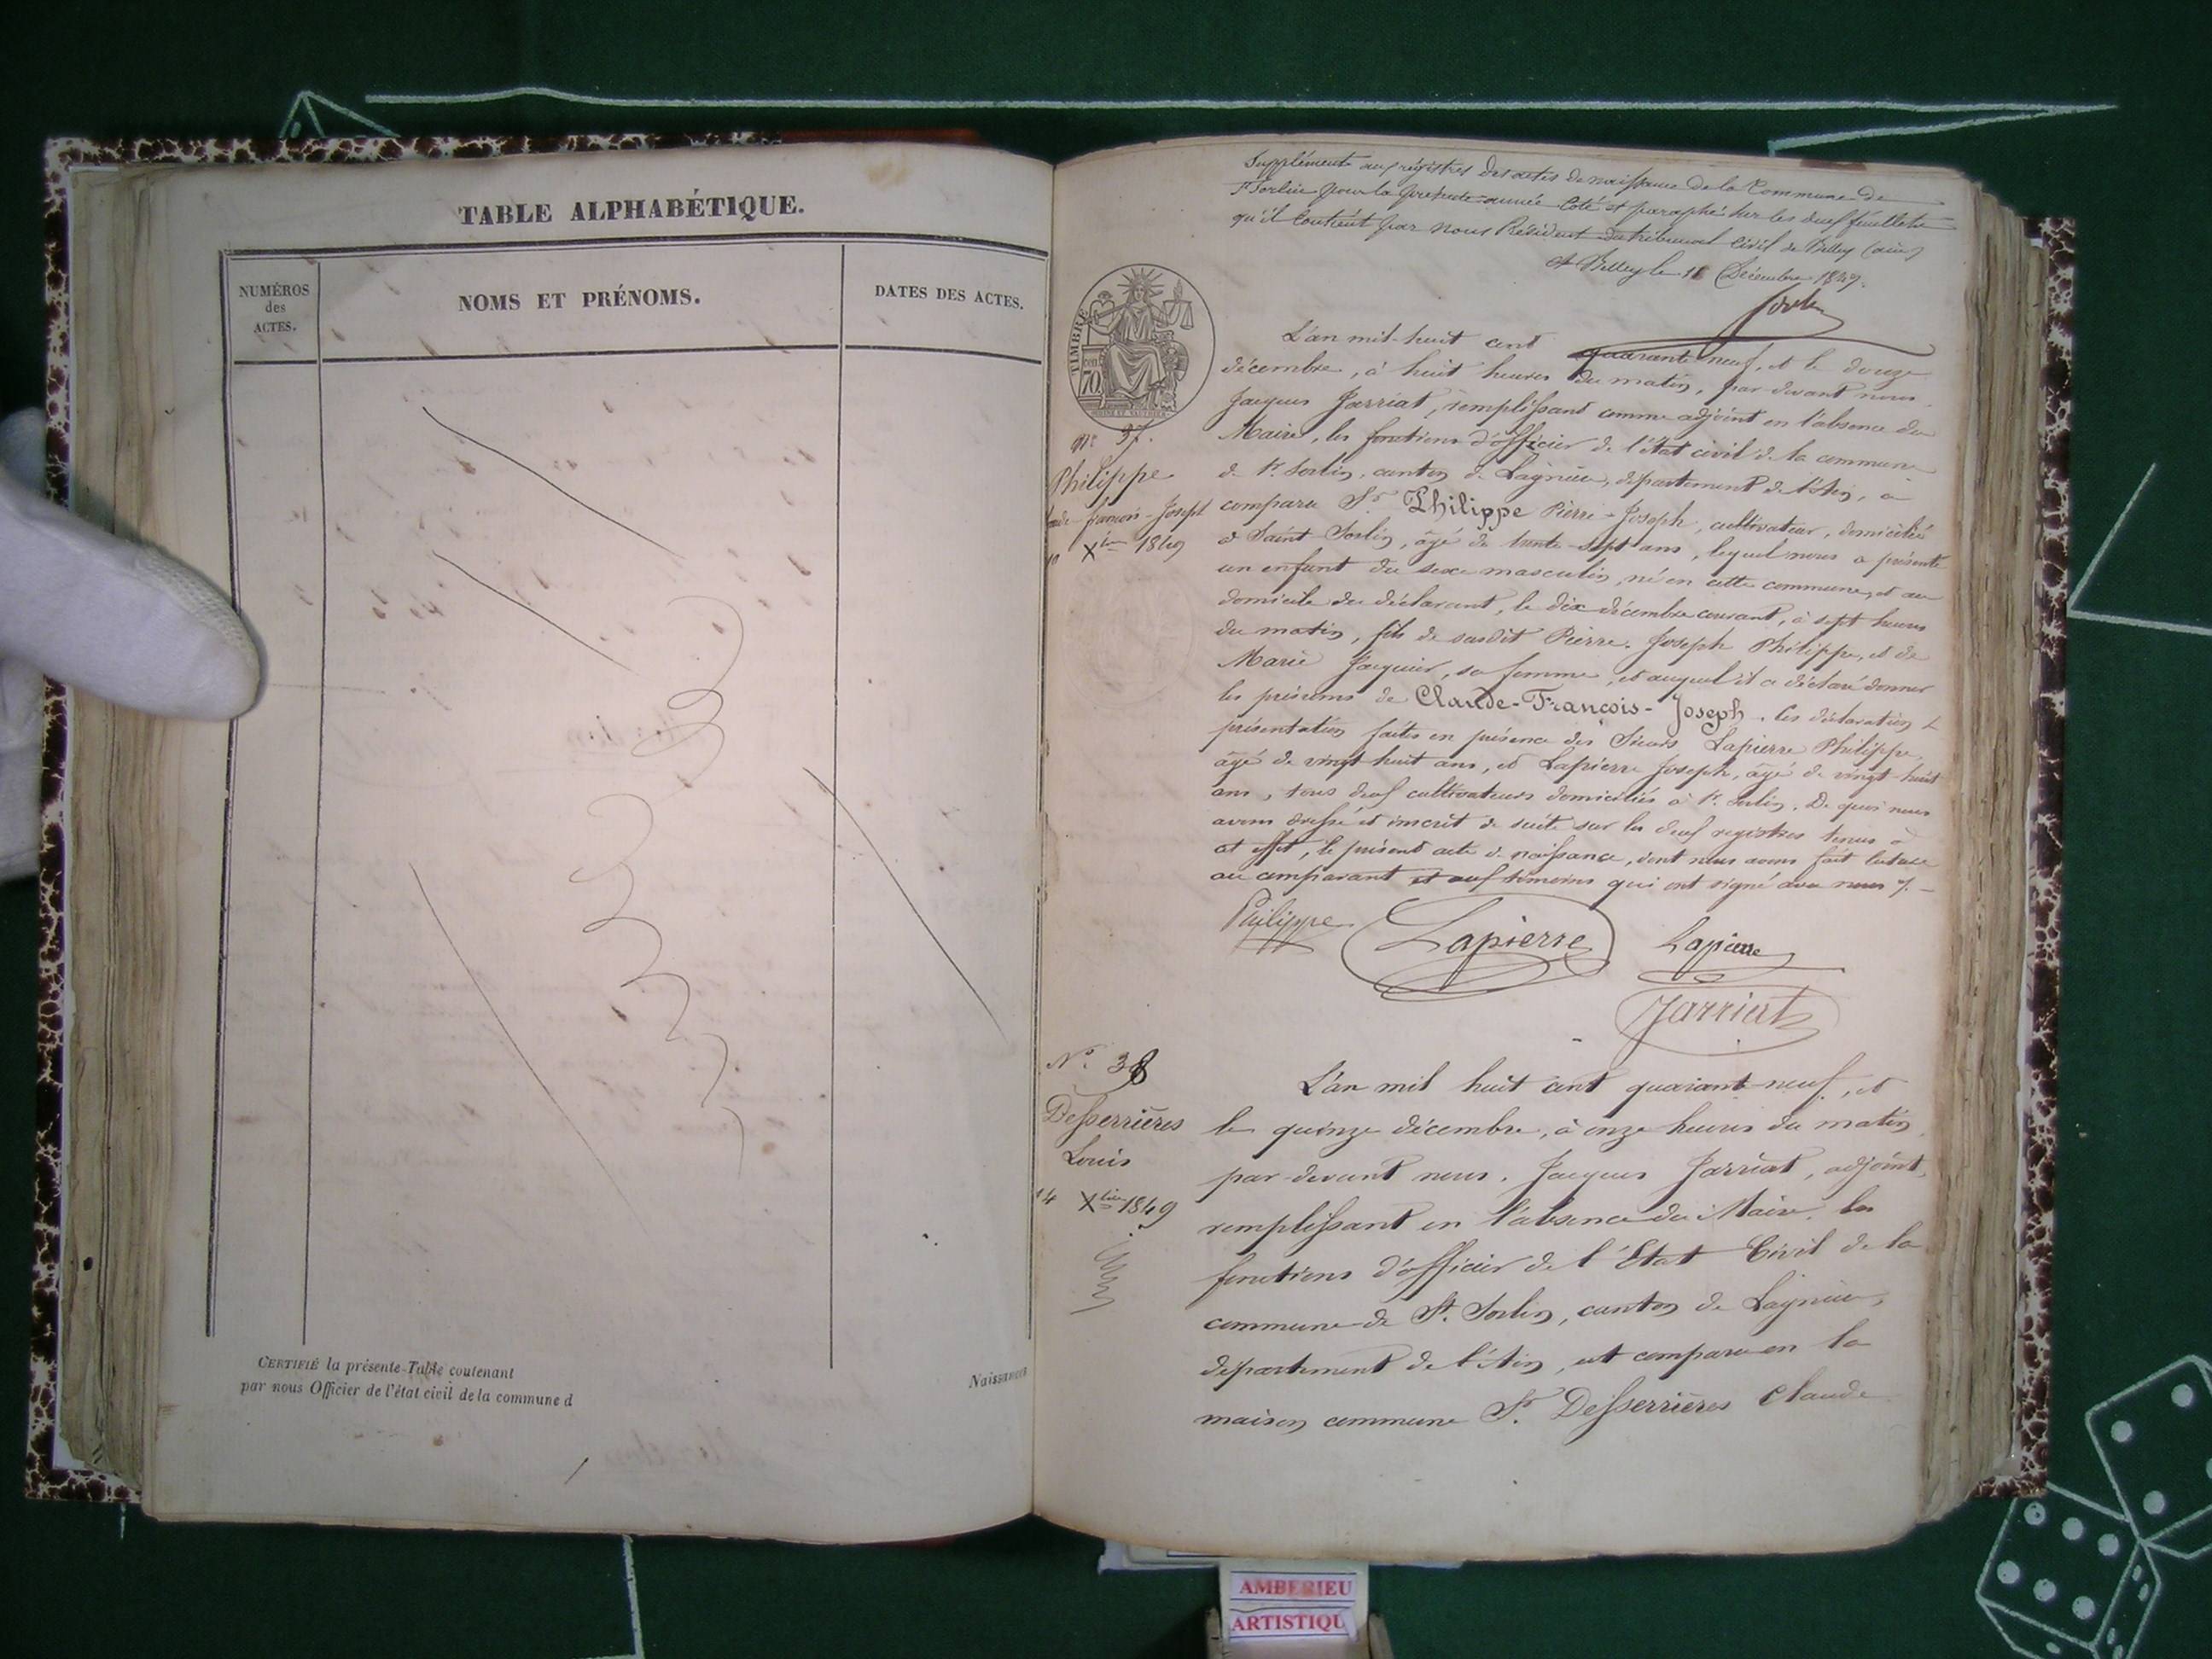 TABLE ALPHABÉTIQUE.
NUMÉROS
des
ACTES.
NOMS ET PRÉNOMS.
DATES DES ACTES.
CERTIFIÉ la présente Table contenant
par nous Officier de l'état civil de la commune d
Naissances
Supplément aux régistres des actes de naissance de la Commune de
St Sorlin pour la présente année Coté et paraphé sur les deux feuillets
qu'il Contient par nous Président du tribunal Civil de Belley (ain)
A Belley le 11 Décembre 1849.
TIMBRE
70
No 37.
Philippe
Claude-françois-Joseph
10 Xbre 1849
L'an mil-huit cent quarante neuf, et le douze
décembre, à huit heures du matin, par-devant nous
Jacques Jarriat, remplissant comme adjoint en l'absence du
Maire, les fonctions d'officier de l'état civil de la commune
de St. Sorlin, canton de Lagnieu, département de l'Ain, a
comparu Sr. Philippe Pierre-Joseph, cultivateur, domicilié
à Saint Sorlin, âgé de trente-sept ans, lequel nous a présenté
un enfant du sexe masculin, né en cette commune, et au
domicile du déclarant, le dix décembre courant, à sept heures
du matin, fils de susdit Pierre-Joseph Philippe, et de
Marie Jacquier, sa femme, et auquel il a déclaré donner
les prénoms de Claude-François-Joseph. Ces déclaration &
présentation faites en présence des Sieurs Lapierre Philippe,
âgé de vingt huit ans, et Lapierre Joseph, âgé de vingt-huit
ans, tous deux cultivateurs domiciliés à St. Sorlin. De quoi nous
avons dressé et inscrit de suite sur les deux registres tenus à
cet effet, le présent acte de naissance, dont nous avons fait lecture
au comparant et aux témoins qui ont signé avec nous /.
Philippe Lapierre Lapierre
Jarriat
No. 38
Desserrières
Louis
14 Xbre 1849
L'an mil huit cent quarant-neuf, et
le quinze décembre, à onze heures du matin
par-devant nous. Jacques Jarriat, adjoint,
remplissant en l'absence du Maire, les
fonctions d'officier de l'Etat Civil de la
commune de St. Sorlin, canton de Lagnieu,
département de l'Ain, est comparu en la
maison commune Sr. Desserrières Claude
AMBERIEU
ARTISTIQU